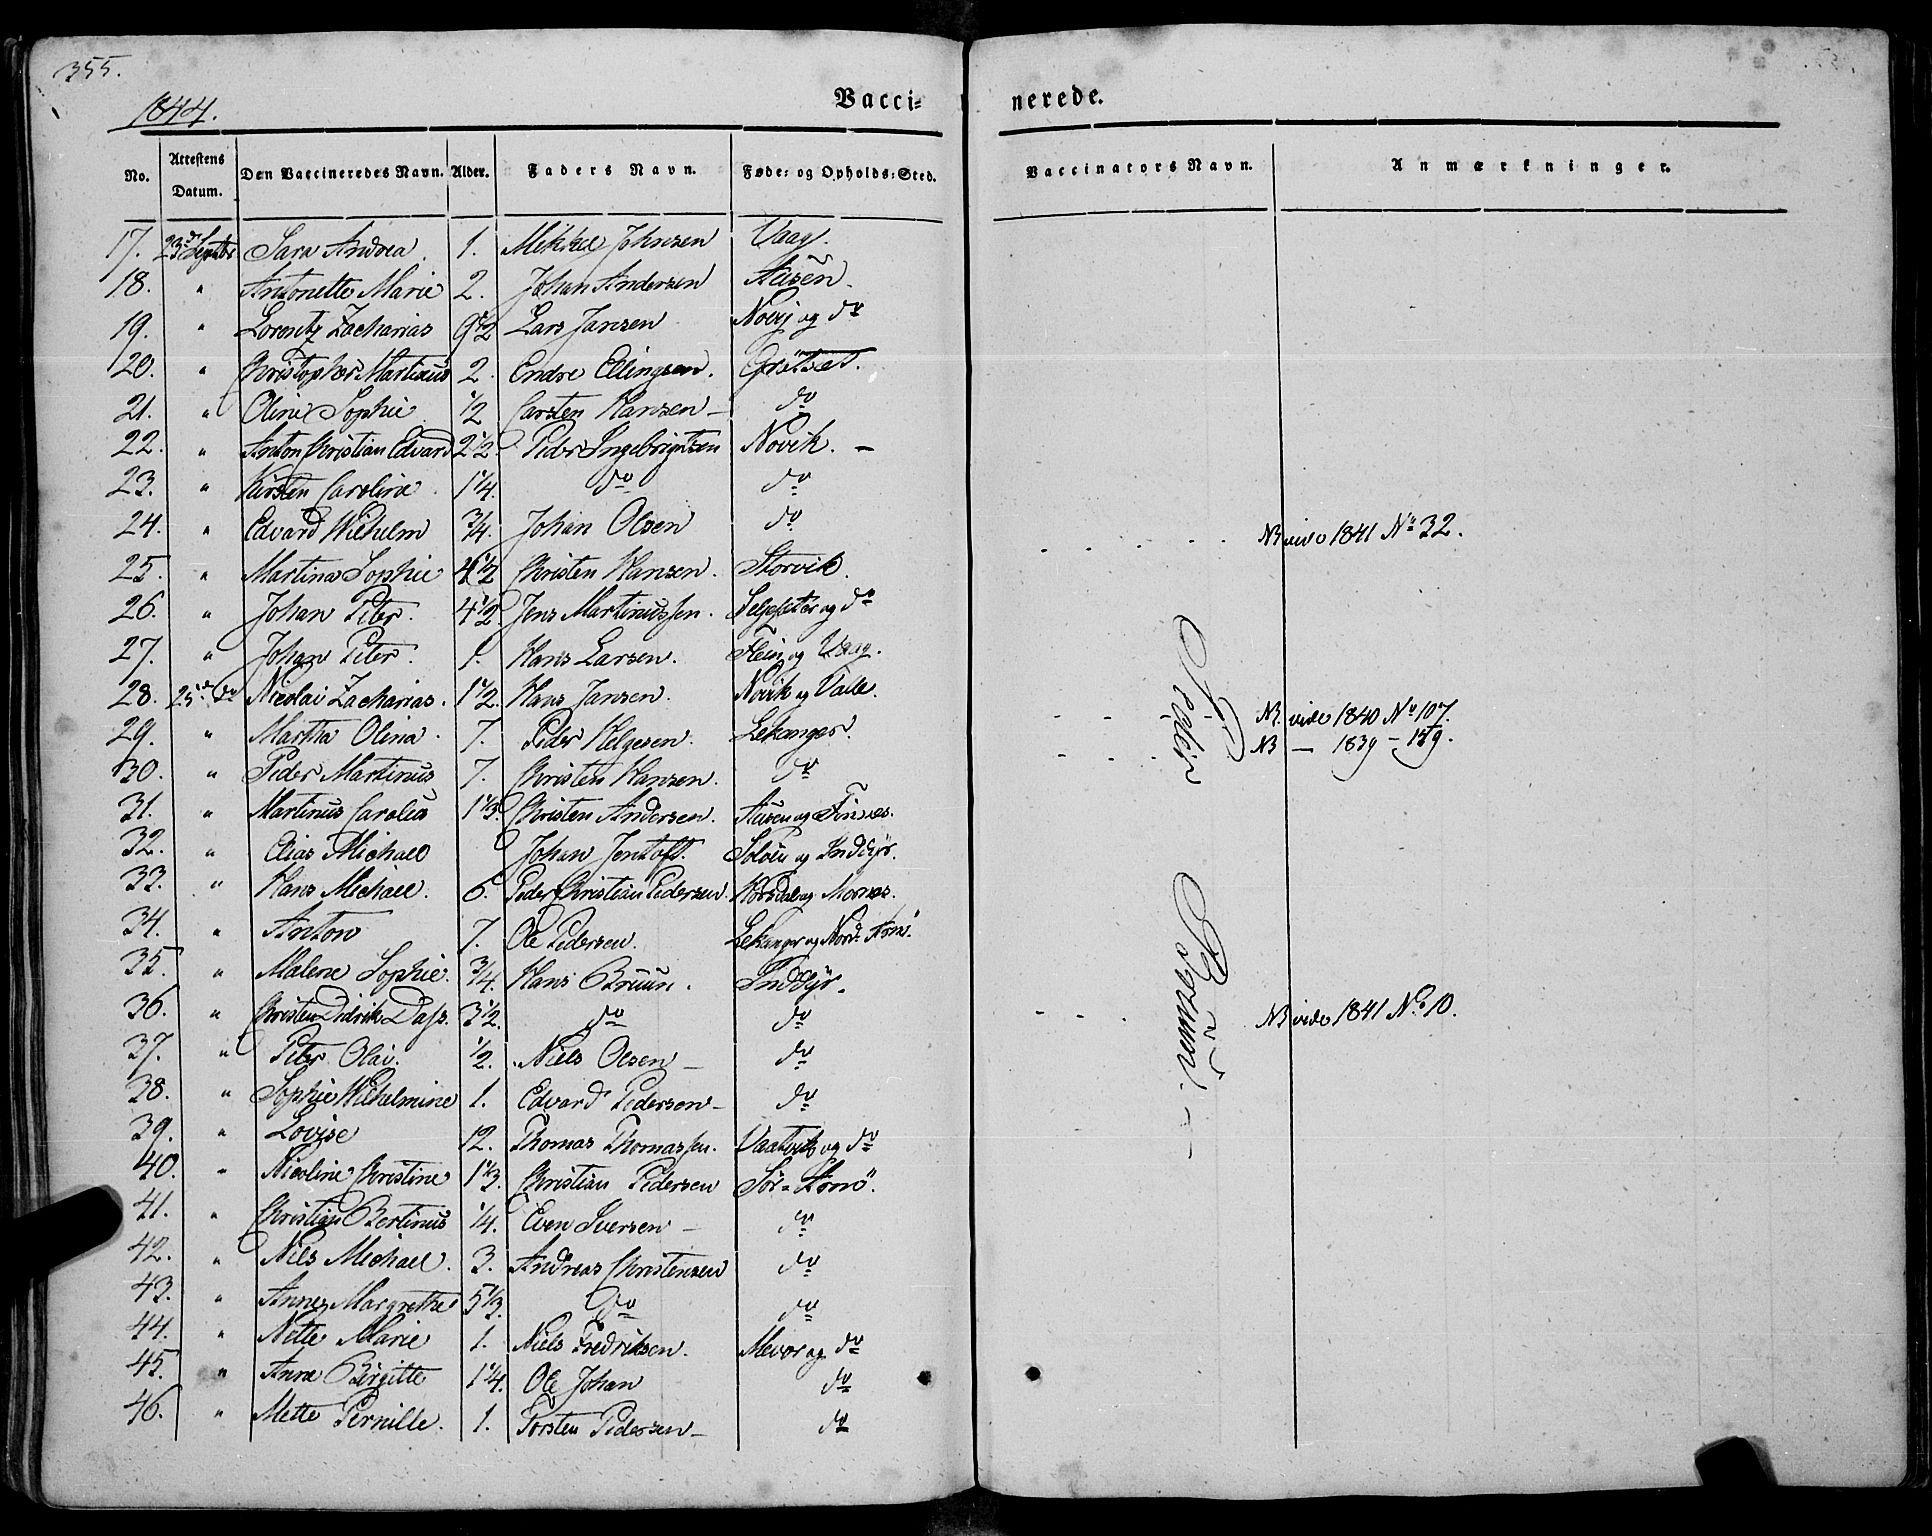 355.
1844.
Vacci=
nerede.
No. Attestens Datum. Den Vaccineredes Navn. Alder. Faders Navn. Føde= og Opholds=Sted. Vaccinators Navn. Anmærkninger.
17. 23d Septbr Sara Andrea. 1. Mikkel Johnsen Vaag.
18. " Antonette Marie 2. Johan Andersen Ausen.
19. " Lorentz Zacharias 9 1/2 Lars Jansen og do
20. " Christopher Martinus 2. Endre Ellingsen. Grötset.
21. " Oline Sophie 1/2 Carsten Hansen — do
22. " Anton Christian Edvard 2 1/2. Peder Ingebrigtsen Novik. —
23. " Kirsten Caroline. 1 1/4. do do
24. " Edvard Wilhelm 3/4. Johan Olsen do . . . . . NB vide 1841 No 32.
25. " Martina Sophie 4 1/2 Christen Hansen. Storvik.
26. " Johan Peter. 4 1/2. Jens Martinussen. og do
27. " Johan Peter. 1. Hans Larsen. Flein og Vaag.
28. 25d do Nicolai Zacharias. 1 1/2. Hans Jansen. Novik og Valle.
29. " Martha Olina. 7. Peder Helgesen. Lekanger. - - NB vide 1840 No 107.
30. " Peder Martinus 7. Christen Hansen. do . . . NB — 1839 — 159.
31. " Martinus Carolius 1 1/3. Christen Andersen. Ausen og Finnes.
32. " Elias Michael Johan Jentoft. Soløen og Inddyr.
33. " Hans Michael. 6. Peder Christian Pedersen. og Mornes.
34. " Anton 7. Ole Pedersen. Lekanger og Nord Arnö.
35. " Malene Sophie. 3/4. Hans Bruun. Inddyr.
36. " Christen Didrik Dass. 3 1/2. do do . . . . NB vide 1841 No 10.
37. " Peter Olai. 1/2. Niels Olsen — do
38. " Sophie Wilhelmine 1. Edvard Pedersen — do
39. " Lovise 12. Thomas Thomassen. Vaatvik og do
40. " Nicoline Christine 1 1/3. Christian Pedersen Sör=Arnö.
41. " Christian Bertinus 1/4. Even Iversen — do
42. " Nils Michael. 3. Andreas Christensen do
43. " Anne Margrethe 5 1/3. do do
44. " Nette Marie 1. Niels Fredriksen. Mevær og do
45. " Anne Birgitte 1 1/4. Ole Johan do
46. " Mette Pernille. 1. Torsten Pedersen — do